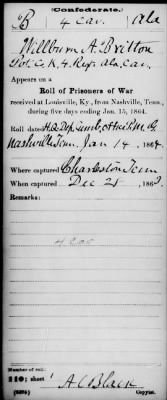 (Confederate.)
B 4 Cav. Ala
Willburn A. Britton
Pvt. Co. K, 4 Reg't Ala. Cav.
Appears on a
Roll of Prisoners of War
received at Louisville, Ky., from Nashville, Tenn.,
during five days ending Jan. 15, 1864.
Roll dated H.Q. Dept. Cumb.
Nashville Tenn. Jan 14, 1864
Where captured Charleston Tenn
When captured Dec 28, 1863.
Remarks:
4 Cav
Number of roll:
110; sheet
A C Black
Copyist.